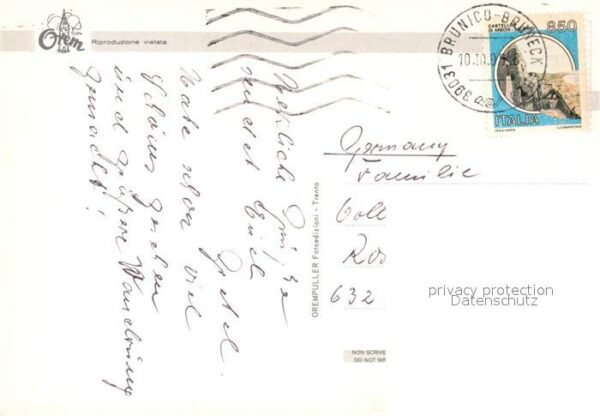 Orem
Riproduzione vietata
39031 BRUNICO-BRUNECK
10.10.9
850
CASTELLO
DI ARECHI
ITALIA
Herzliche Grüße
sendet Euch
Gretel.
Habe schon viel
Schönes gesehen
und größere Wanderung
gemacht!
OREMPULLER Fotoedizioni - Trento
Germany
Familie
632
privacy protection
Datenschutz
NON SCRIVE
DO NOT WR